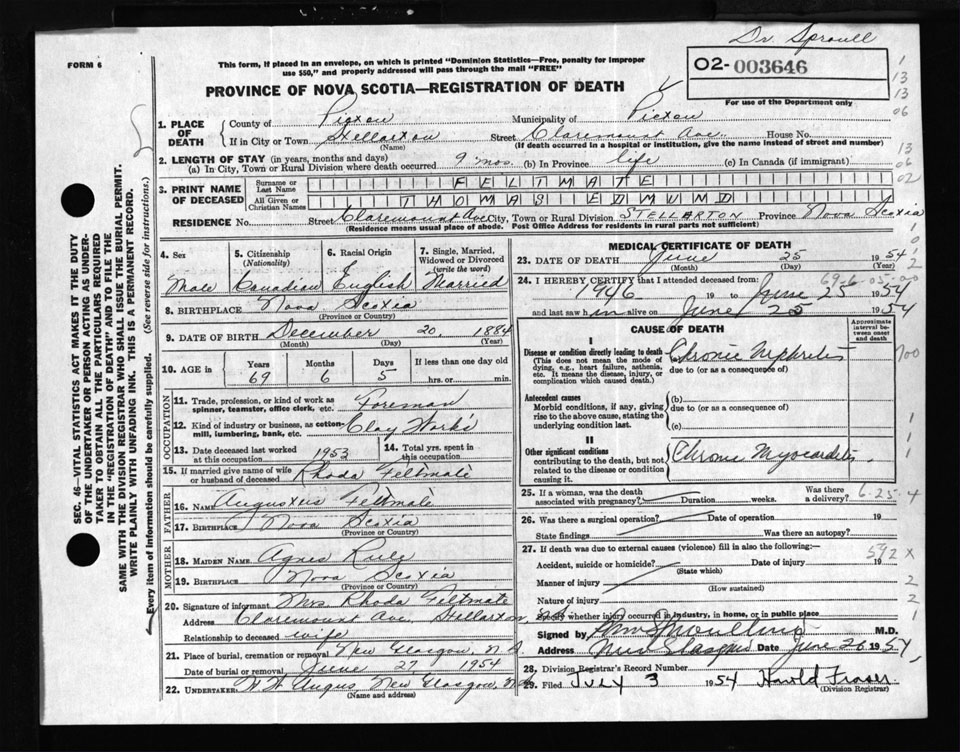 Dr. Sproull
FORM 6
This form, if placed in an envelope, on which is printed "Dominion Statistics—Free, penalty for improper
use $50," and properly addressed will pass through the mail "FREE"
02- 003646
For use of the Department only
PROVINCE OF NOVA SCOTIA—REGISTRATION OF DEATH
1. PLACE OF DEATH
County of Pictou Municipality of Pictou
If in City or Town Stellarton Street Claremount Ave. House No.
(Name) (If death occurred in a hospital or institution, give the name instead of street and number)
2. LENGTH OF STAY (in years, months and days)
(a) In City, Town or Rural Division where death occurred 9 mos. (b) In Province life (c) In Canada (if immigrant)
3. PRINT NAME OF DECEASED
Surname or Last Name FELTMATE
All Given or Christian Names THOMAS EDMUND
RESIDENCE No. Street Claremount Ave City, Town or Rural Division STELLARTON Province Nova Scotia
(Residence means usual place of abode. Post Office Address for residents in rural parts not sufficient)
4. Sex
Male
5. Citizenship (Nationality)
Canadian
6. Racial Origin
English
7. Single, Married, Widowed or Divorced (write the word)
Married
8. BIRTHPLACE Nova Scotia
(Province or Country)
9. DATE OF BIRTH December 20, 1884
(Month) (Day) (Year)
10. AGE in Years Months Days If less than one day old
69 6 5 hrs. or min.
OCCUPATION
11. Trade, profession, or kind of work as spinner, teamster, office clerk, etc. Foreman
12. Kind of industry or business, as cotton-mill, lumbering, bank, etc. Clay Works
13. Date deceased last worked at this occupation 1953
14. Total yrs. spent in this occupation
15. If married give name of wife or husband of deceased Rhoda Feltmate
FATHER
16. NAME Augustus Feltmate
17. BIRTHPLACE Nova Scotia
(Province or Country)
MOTHER
18. MAIDEN NAME Agnes
19. BIRTHPLACE Nova Scotia
(Province or Country)
20. Signature of informant Mrs Rhoda Feltmate
Address Claremount Ave, Stellarton, N.S.
Relationship to deceased wife
21. Place of burial, cremation or removal New Glasgow, N.S.
Date of burial or removal June 27 1954
22. UNDERTAKER H W Angus, New Glasgow, N.S.
(Name and address)
MEDICAL CERTIFICATE OF DEATH
23. DATE OF DEATH June 25 1954
(Month) (Day) (Year)
24. I HEREBY CERTIFY that I attended deceased from:
1946 19 to June 25 1954
and last saw him alive on June 25 1954
CAUSE OF DEATH
Approximate interval between onset and death
I
Disease or condition directly leading to death
(This does not mean the mode of dying, e.g., heart failure, asthenia, etc. It means the disease, injury, or complication which caused death.)
(a) Chronic Nephritis
due to (or as a consequence of)
Antecedent causes
Morbid conditions, if any, giving rise to the above cause, stating the underlying condition last.
(b)
due to (or as a consequence of)
(c)
II
Other significant conditions
contributing to the death, but not related to the disease or condition causing it.
Chronic Myocarditis
25. If a woman, was the death associated with pregnancy? Duration weeks. Was there a delivery?
6-25-4
26. Was there a surgical operation? Date of operation 19
State findings Was there an autopsy?
27. If death was due to external causes (violence) fill in also the following:—
592 x
Accident, suicide or homicide? Date of injury 19
(State which)
Manner of injury
(How sustained)
Nature of injury
Specify whether injury occurred in industry, in home, or in public place
Signed by M.D.
Address New Glasgow Date June 26 1954
28. Division Registrar's Record Number
29. Filed JULY 3 1954 Harold Fraser
(Division Registrar)
SEC. 46—VITAL STATISTICS ACT MAKES IT THE DUTY
OF THE UNDERTAKER OR PERSON ACTING AS UNDER-
TAKER TO OBTAIN ALL THE PARTICULARS REQUIRED
IN THE "REGISTRATION OF DEATH" AND TO FILE THE
SAME WITH THE DIVISION REGISTRAR WHO SHALL ISSUE THE BURIAL PERMIT.
WRITE PLAINLY WITH UNFADING INK. THIS IS A PERMANENT RECORD.
Every item of information should be carefully supplied. (See reverse side for instructions.)